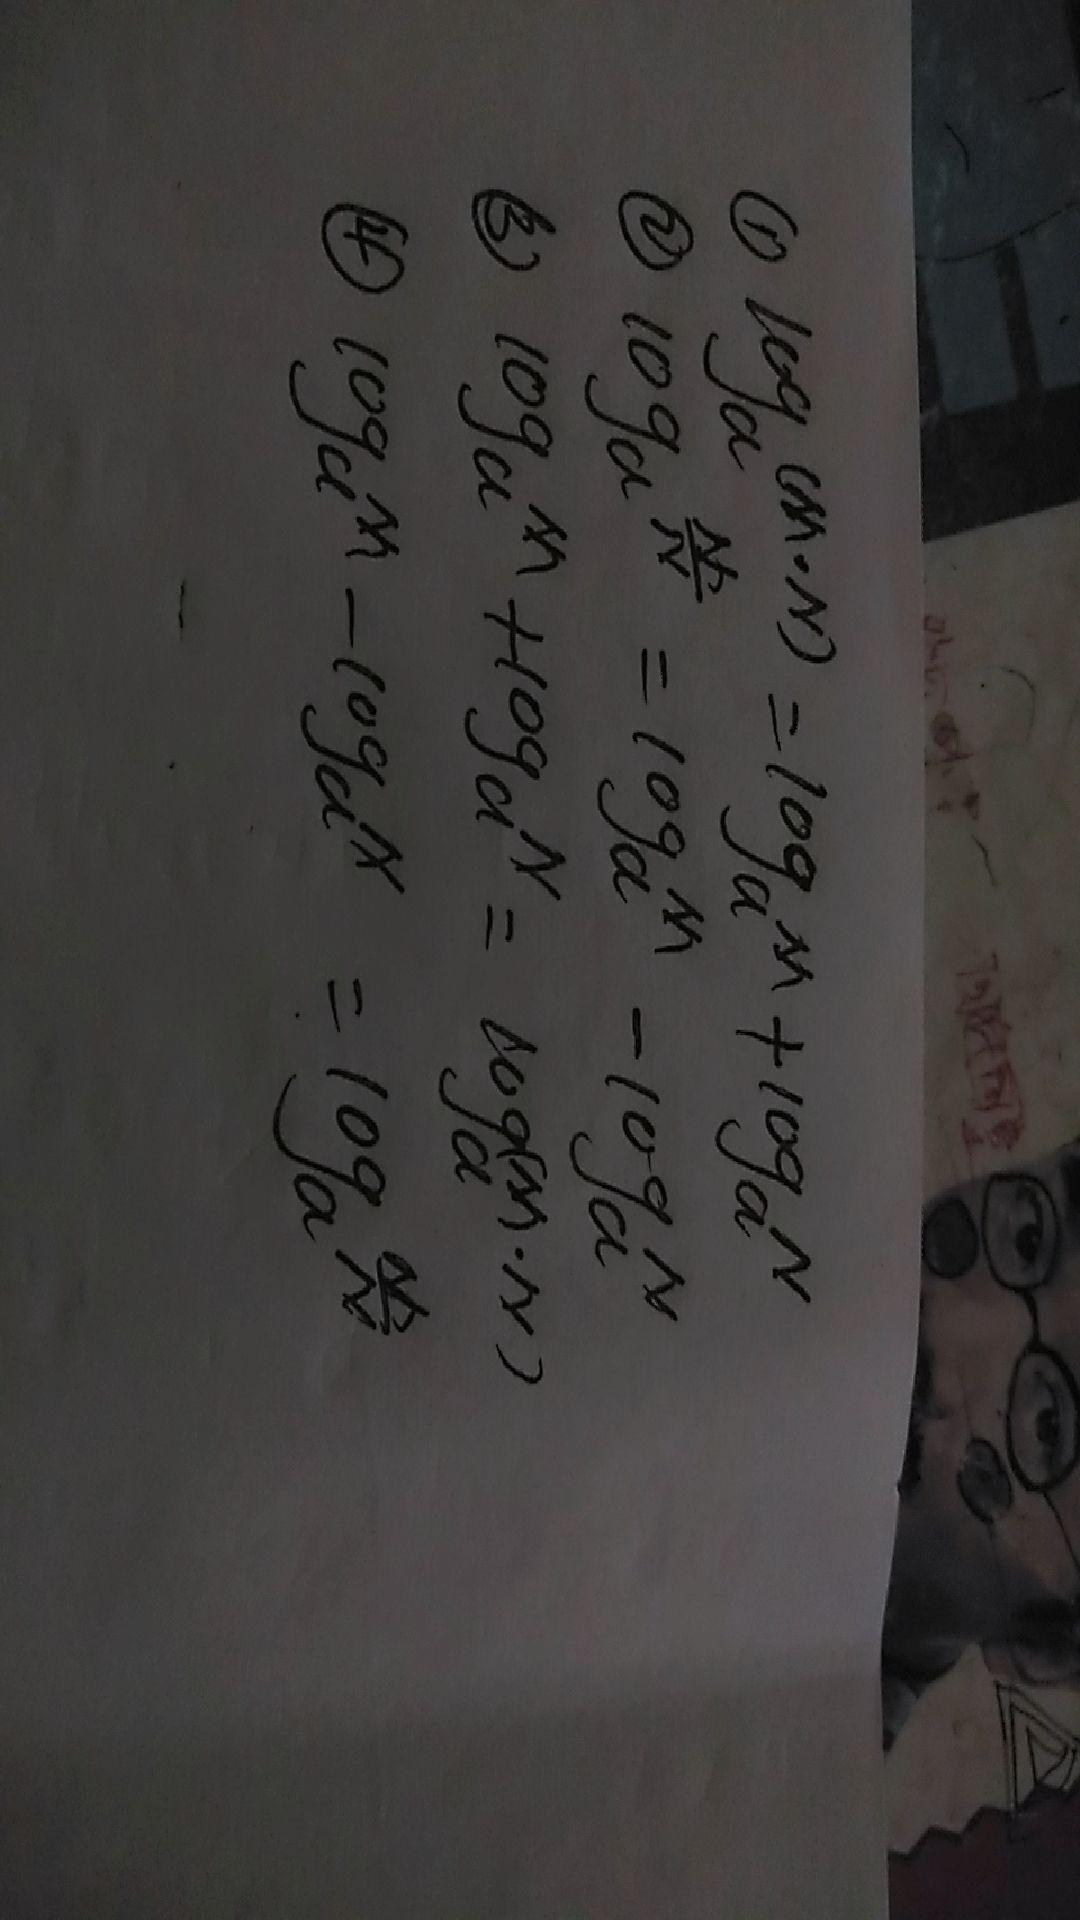 ① logₐ(M·N) = logₐM + logₐN
② logₐ M/N = logₐM - logₐN
③ logₐM + logₐN = logₐ(M·N)
④ logₐM - logₐN = logₐ M/N